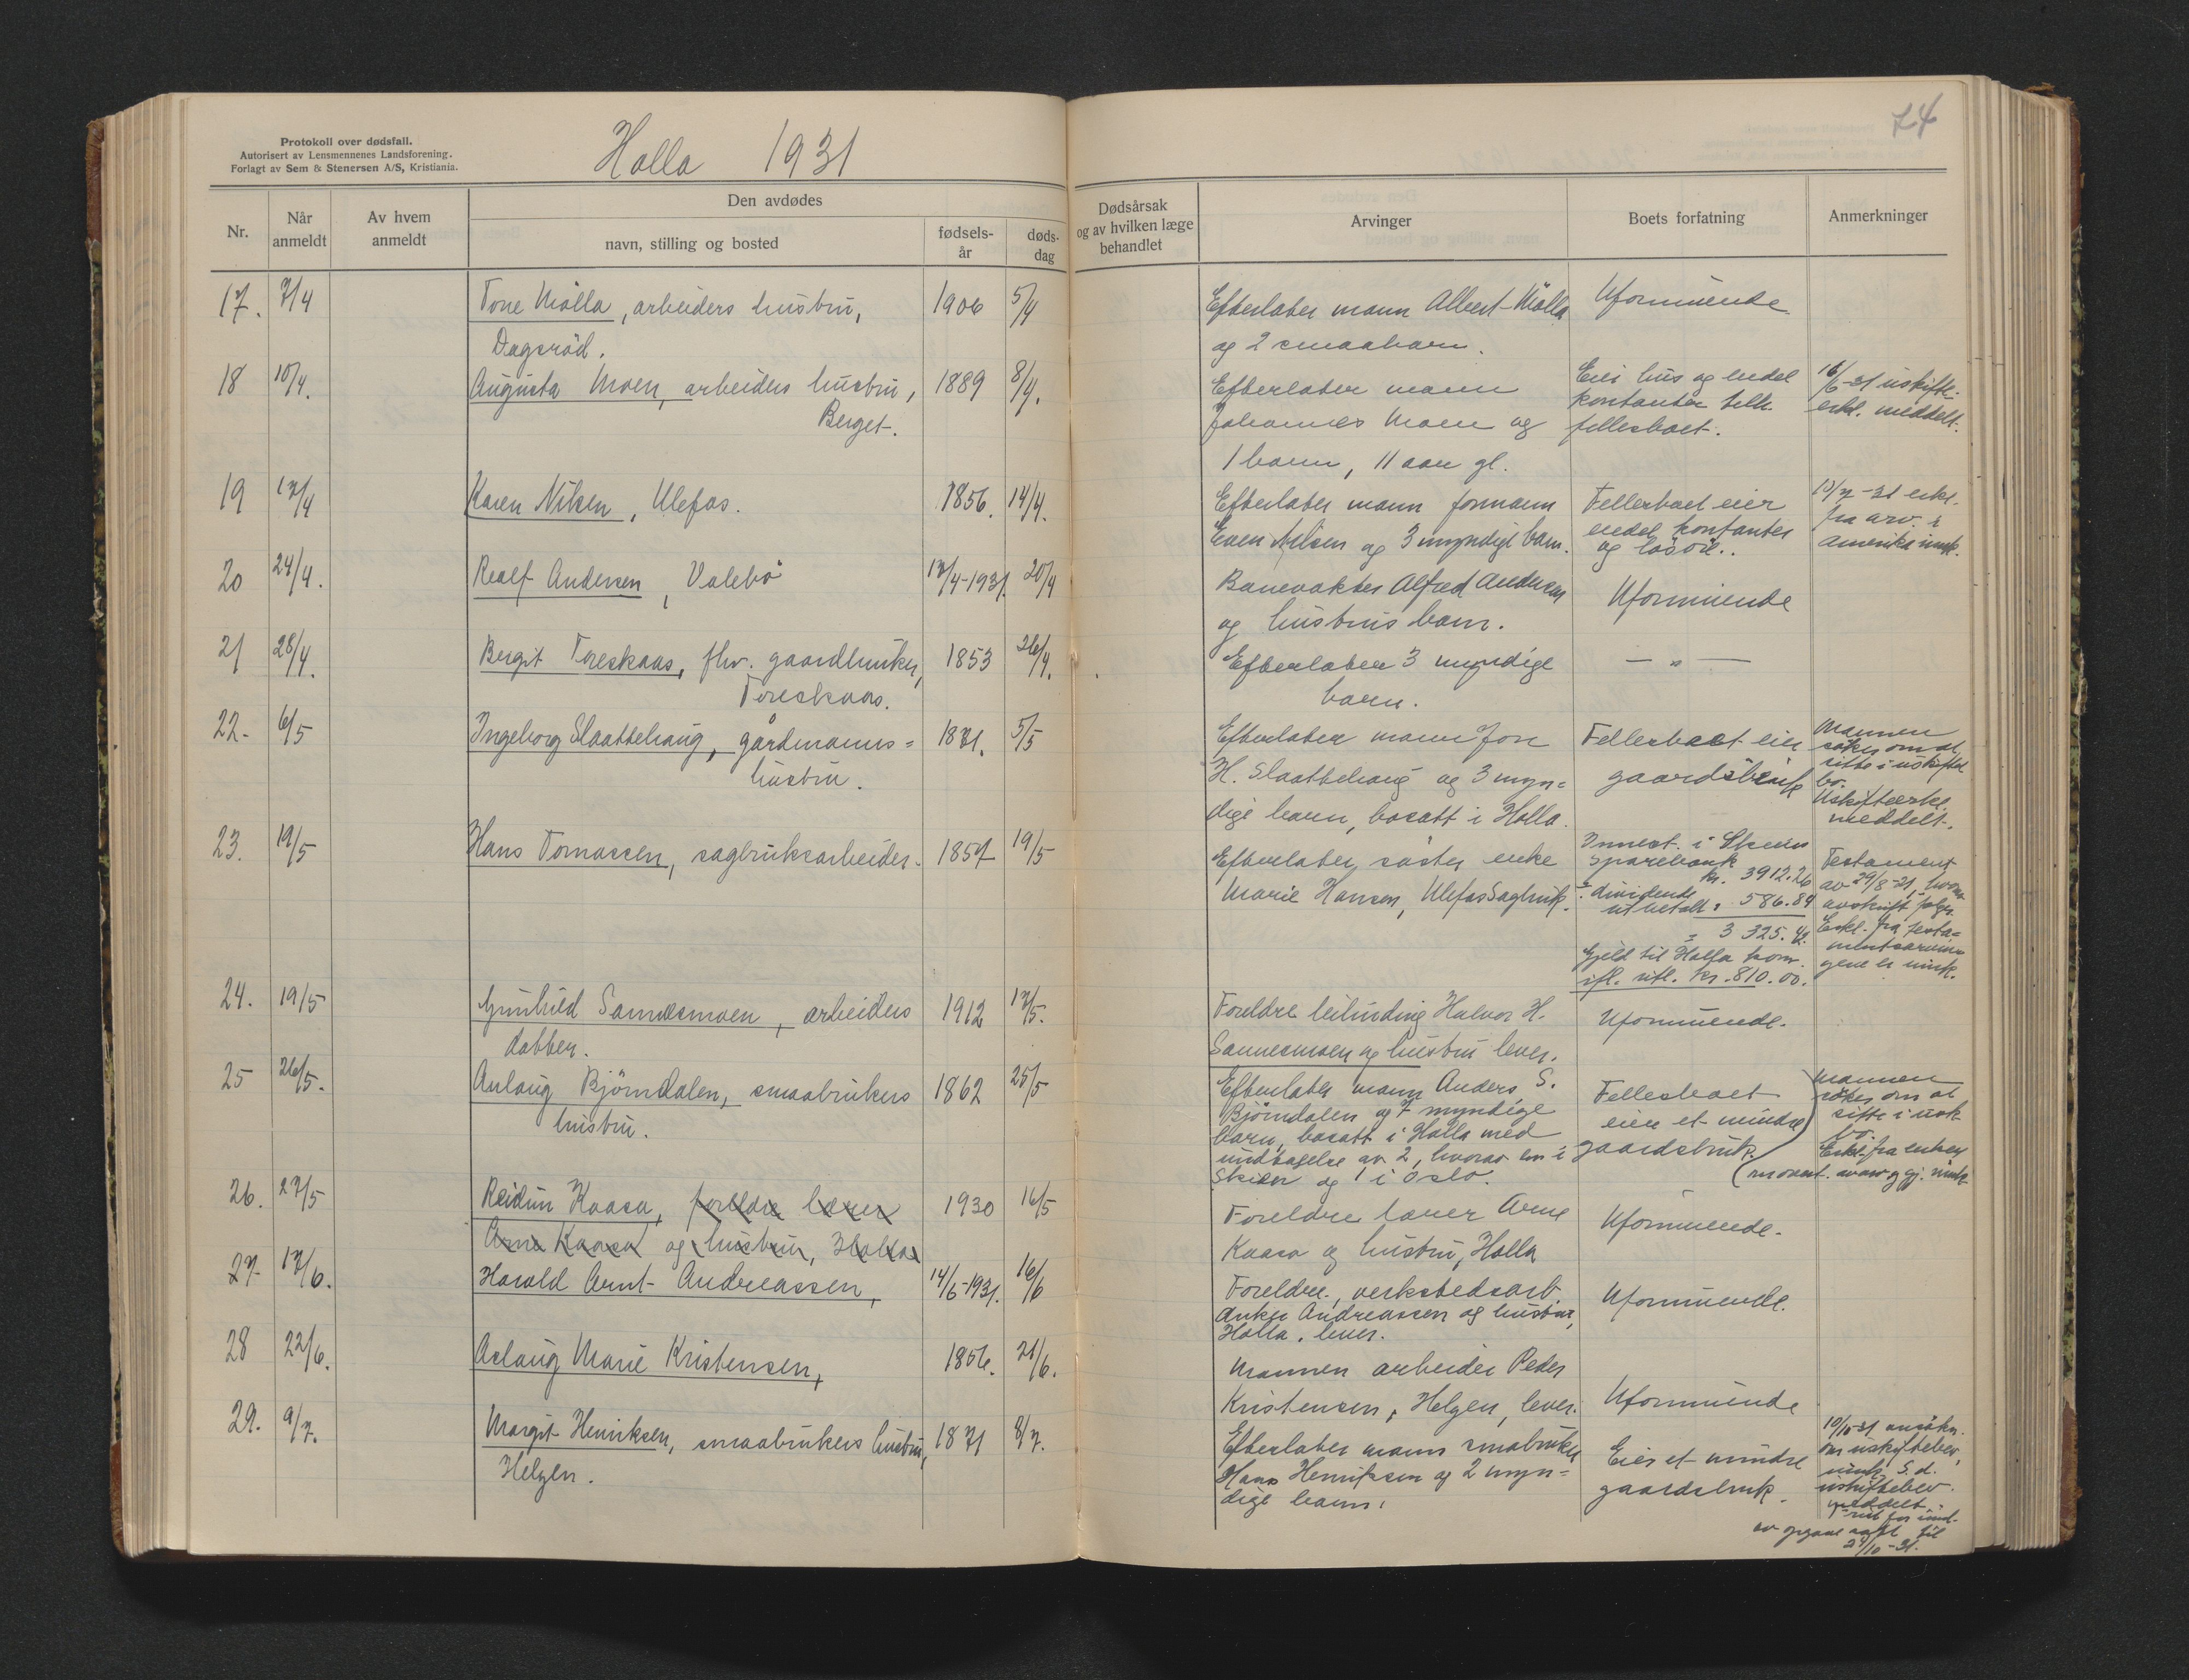 Protokoll over dødsfall.
Autorisert av Lensmennenes Landsforening.
Forlagt av Sem & Stenersen A/S, Kristiania.
Holla 1931
74
Nr.
Når anmeldt
Av hvem anmeldt
Den avdødes
navn, stilling og bosted
fødsels-år
døds-dag
Dødsårsak og av hvilken læge behandlet
Arvinger
Boets forfatning
Anmerkninger
17. 7/4 Tone Mölla, arbeiders hustru, 1906 5/4 Efterlater mann Albert Mölla Uformuende
Dagsröd. og 2 smaabarn.
18 10/4. Augusta Moen, arbeiders hustru, 1889 8/4. Efterlater mann Eier hus og endel 16/6-31 uskifte-
Berget. Johannes Moen og kontanter tilh. erkl. meddelt.
1 barn, 11 aar gl. fellesboet.
19 17/4 Karen Nilsen, Ulefos. 1856. 14/4. Efterlater mann formann Fellesboet eier 13/7-31 erkl.
Even Nilsen og 3 myndige barn. endel kontanter fra arv. i
og lösöre. Amerika innk.
20 24/4. Realf Andersen, Valebö 17/4-1931. 20/4 Banevokter Alfred Andersen Uformuende
og hustrus barn.
21 28/4. Bergit Toreskaas, fhv. gaardbruker, 1853 26/4. Efterlater 3 myndige — " —
Toreskaas. barn.
22. 6/5 Ingeborg Slaattehaug, gårdmanns= 1871. 5/5 Efterlater mann Jon Fellesboet eier Mannen
hustru. H. Slaattehaug og 3 myn= gaardsbruk söker om at
dige barn, bosatt i Holla. sitte i uskiftet
bo.
Uskifteerkl.
meddelt.
23. 19/5 Hans Tomassen, sagbruksarbeider. 1857 19/5 Efterlater söster enke Innest. i Skiens Testament
Marie Hansen, Ulefos Sagbruk. Sparebank av 29/8-21, hvorav
kr. 3912.26 avskrift fölger.
÷ dividende Erkl. fra testa=
utbetalt " 586.84 mentsarvin-
= 3 325.42. gene er innk.
Gjeld til Holla kom.
ifl. utl. kr. 810.00.
24. 19/5 Gunhild Sannesmoen, arbeiders 1912 17/5. Foreldre leilending Halvor H. Uformuende.
datter. Sannesmoen og hustru lever.
25 26/5. Anlaug Björndalen, smaabrukers 1862 25/5 Efterlater mann Anders S. Fellesboet Mannen
hustru. Björndalen og 7 myndige eier et mindre söker om at
barn, bosatt i Holla med gaardsbruk. sitte i usk.
undtagelse av 2, hvorav en i bo.
Skien og 1 i Oslo. Erkl. fra enhver
26. 27/5 Reidun Kaasa, foreldre lærer 1930 16/5 Foreldre lærer Arne Uformuende.
Arne Kaasa og hustru, Holla Kaasa og hustru, Holla
27. 17/6. Harald Arnt Andreassen, 14/6-1931. 16/6 Foreldre, verkstedsarb. Uformuende.
Anker Andreassen og hustru,
Holla, lever.
28 22/6. Aslaug Marie Kristensen, 1856. 21/6. Mannen arbeider Peder
Kristensen, Helgen, lever. Uformuende
29. 9/7. Margit Henriksen, smaabrukers hustru, 1871 8/7. Efterlater mann smabruker Eier et mindre 10/10-31 ansökn.
Helgen. Hans Henriksen og 2 myn= gaardsbruk. om uskiftebev.
dige barn. innk. S.d.
uskiftebev.
meddelt.
Frist for innd.
av opgave satt til
24/10-31.